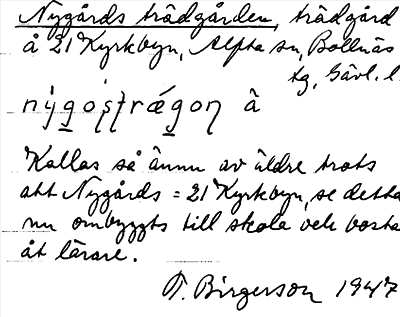 Nygårds trädgården, trädgård
å 21 Kyrkbyn, Alfta sn, Bollnäs
tg, Gävl. l.
nýgo̱ṣṭrǽgo̱ṇ å
Kallas så ännu av äldre trots
att Nygårds = 21 Kyrkbyn, se detta
nu ombyggts till skola och bosta
åt lärare.
F. Birgerson 1947